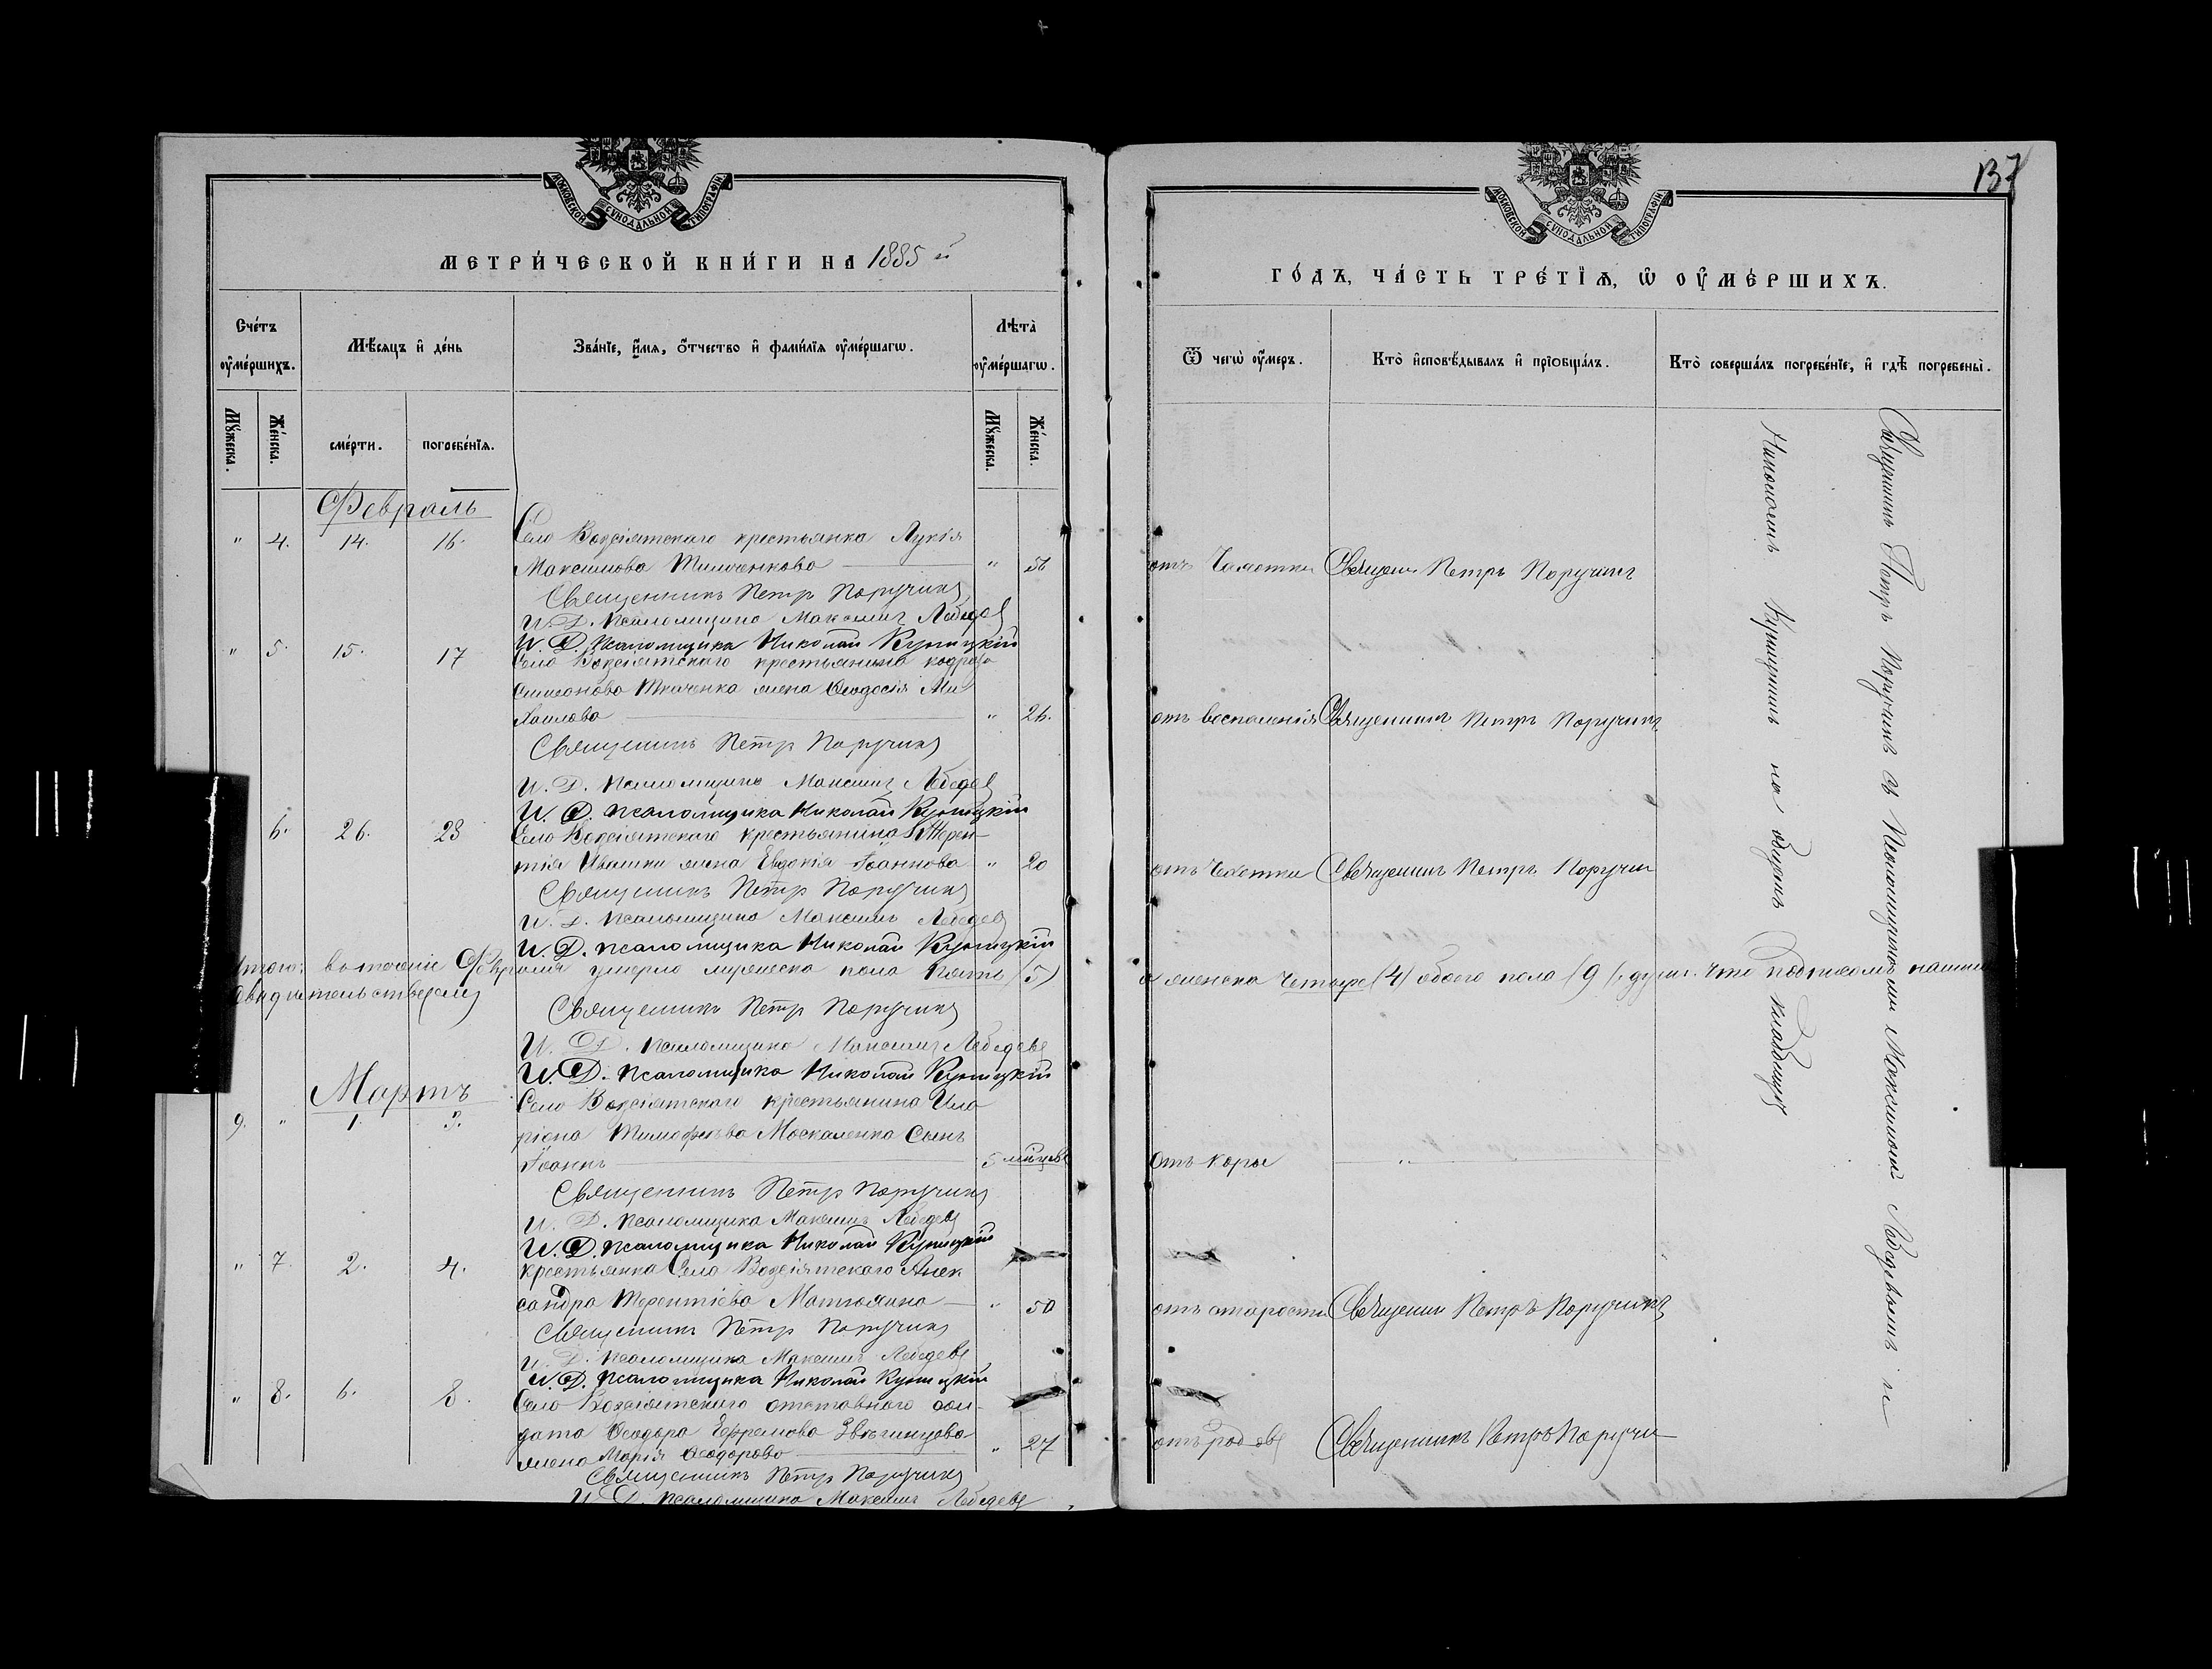 137
МОСКОВСКОЙ СѴНОДАЛЬНОЙ ТИПОГРАФІИ
МЕТРИ́ЧЕСКОЙ КНИ́ГИ НА 1885 й
Сче́тъ ᲂу҆ме́ршихъ.
Мѣ́сяцъ и҆ де́нь
Зва́нїе, и҆́мѧ, ѻ҆́тчество и҆ фами́лїѧ ᲂу҆ме́ршагѡ.
Лѣта̀ ᲂу҆ме́ршагѡ.
Мꙋ́жеска.
Же́нска.
сме́рти.
погребе́нїѧ.
Мꙋ́жеска.
Же́нска.
Февраль
" 4. 14. 16. Село Возсіятского крестьянка Лукія
Максимова Тимченкова " 56
Священникъ Петр Поручинъ
И. Д. псаломщика Максимъ Лебедев
И. Д. псаломщика Николай Купицкій
" 5. 15. 17 Село Возсіятского крестьянина
Симеонова Ткаченка жена Ѳеодосія Ми-
хаилова " 26.
Священникъ Петр Поручинъ
И. Д. псаломщика Максимъ Лебедев
И. Д. псаломщика Николай Купицкій
6. 26. 28 Село Возсіятского крестьянина Терен-
тія Ивашки жена Евдокія Іоаннова " 20
Священникъ Петр Поручинъ
И. Д. псаломщика Максимъ Лебедев
И. Д. псаломщика Николай Купицкій
Итого: въ теченіе Февраля умерло мужеска пола пять (5)
свидетельствуемъ
Священникъ Петр Поручинъ
И. Д. псаломщика Максимъ Лебедевъ
И. Д. псаломщика Николай Купицкій
Мартъ
9. " 1. 3. Село Возсіятского крестьянина Ила
ріона Тимофеева Москаленка сынъ
Іоаннъ 5 місцевъ
Священникъ Петр Поручинъ
И. Д. псаломщика Максимъ Лебедевъ
И. Д. псаломщика Николай Купицкій
" 7. 2. 4. крестьянка Села Возсіятского Алек
сандра Терентіева Матюхина " 50
Священникъ Петр Поручинъ
И. Д. псаломщика Максимъ Лебедевъ
И. Д. псаломщика Николай Купицкій
" 8. 6. 8. Село Возсіятского отставного сол-
дата Ѳеодора Ефремова Звягинцова
жена Марія Ѳеодорова " 27
Священникъ Петр Поручинъ
И. Д. псаломщика Максимъ Лебедевъ
МОСКОВСКОЙ СѴНОДАЛЬНОЙ ТИПОГРАФІИ
ГО́ДЪ, ЧА́СТЬ ТРЕ́ТЇѦ, Ѡ҆ ОУ҆МЕ́РШИХЪ.
Ѿ чегѡ̀ ᲂу҆́меръ.
Кто̀ и҆сповѣ́дывалъ и҆ прїѻбща́лъ.
Кто̀ соверша́лъ погребе́нїе, и҆ гдѣ̀ погребены̀.
отъ Чахотки Священ Петръ Поручинъ
отъ воспаленія Священникъ Петръ Поручинъ
отъ Чахотки Священникъ Петръ Поручин
а женска Четыре (4) обоего пола (9) душъ. Что подписомъ нашим
Отъ коры "
отъ старости Священник Петръ Поручинъ
отъ родовъ Священникъ Петръ Поручи
Священникъ Петръ Поручинъ съ Псаломщиками Максимомъ Лебедевымъ и
Николаемъ Купицкимъ на общемъ кладбищѣ